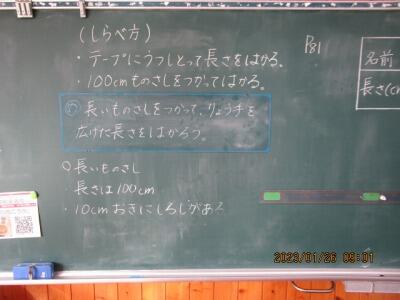 (しらべ方)
・テープにうつしとって長さをはかる。
・100cmものさしをつかってはかる。
め 長いものさしをつかって、りょう手を
広げた長さをはかろう。
○長いものさし
・長さは100cm
・10cmおきにしるしがある
P81
名前
長さ(cm
2023/01/26 09:01